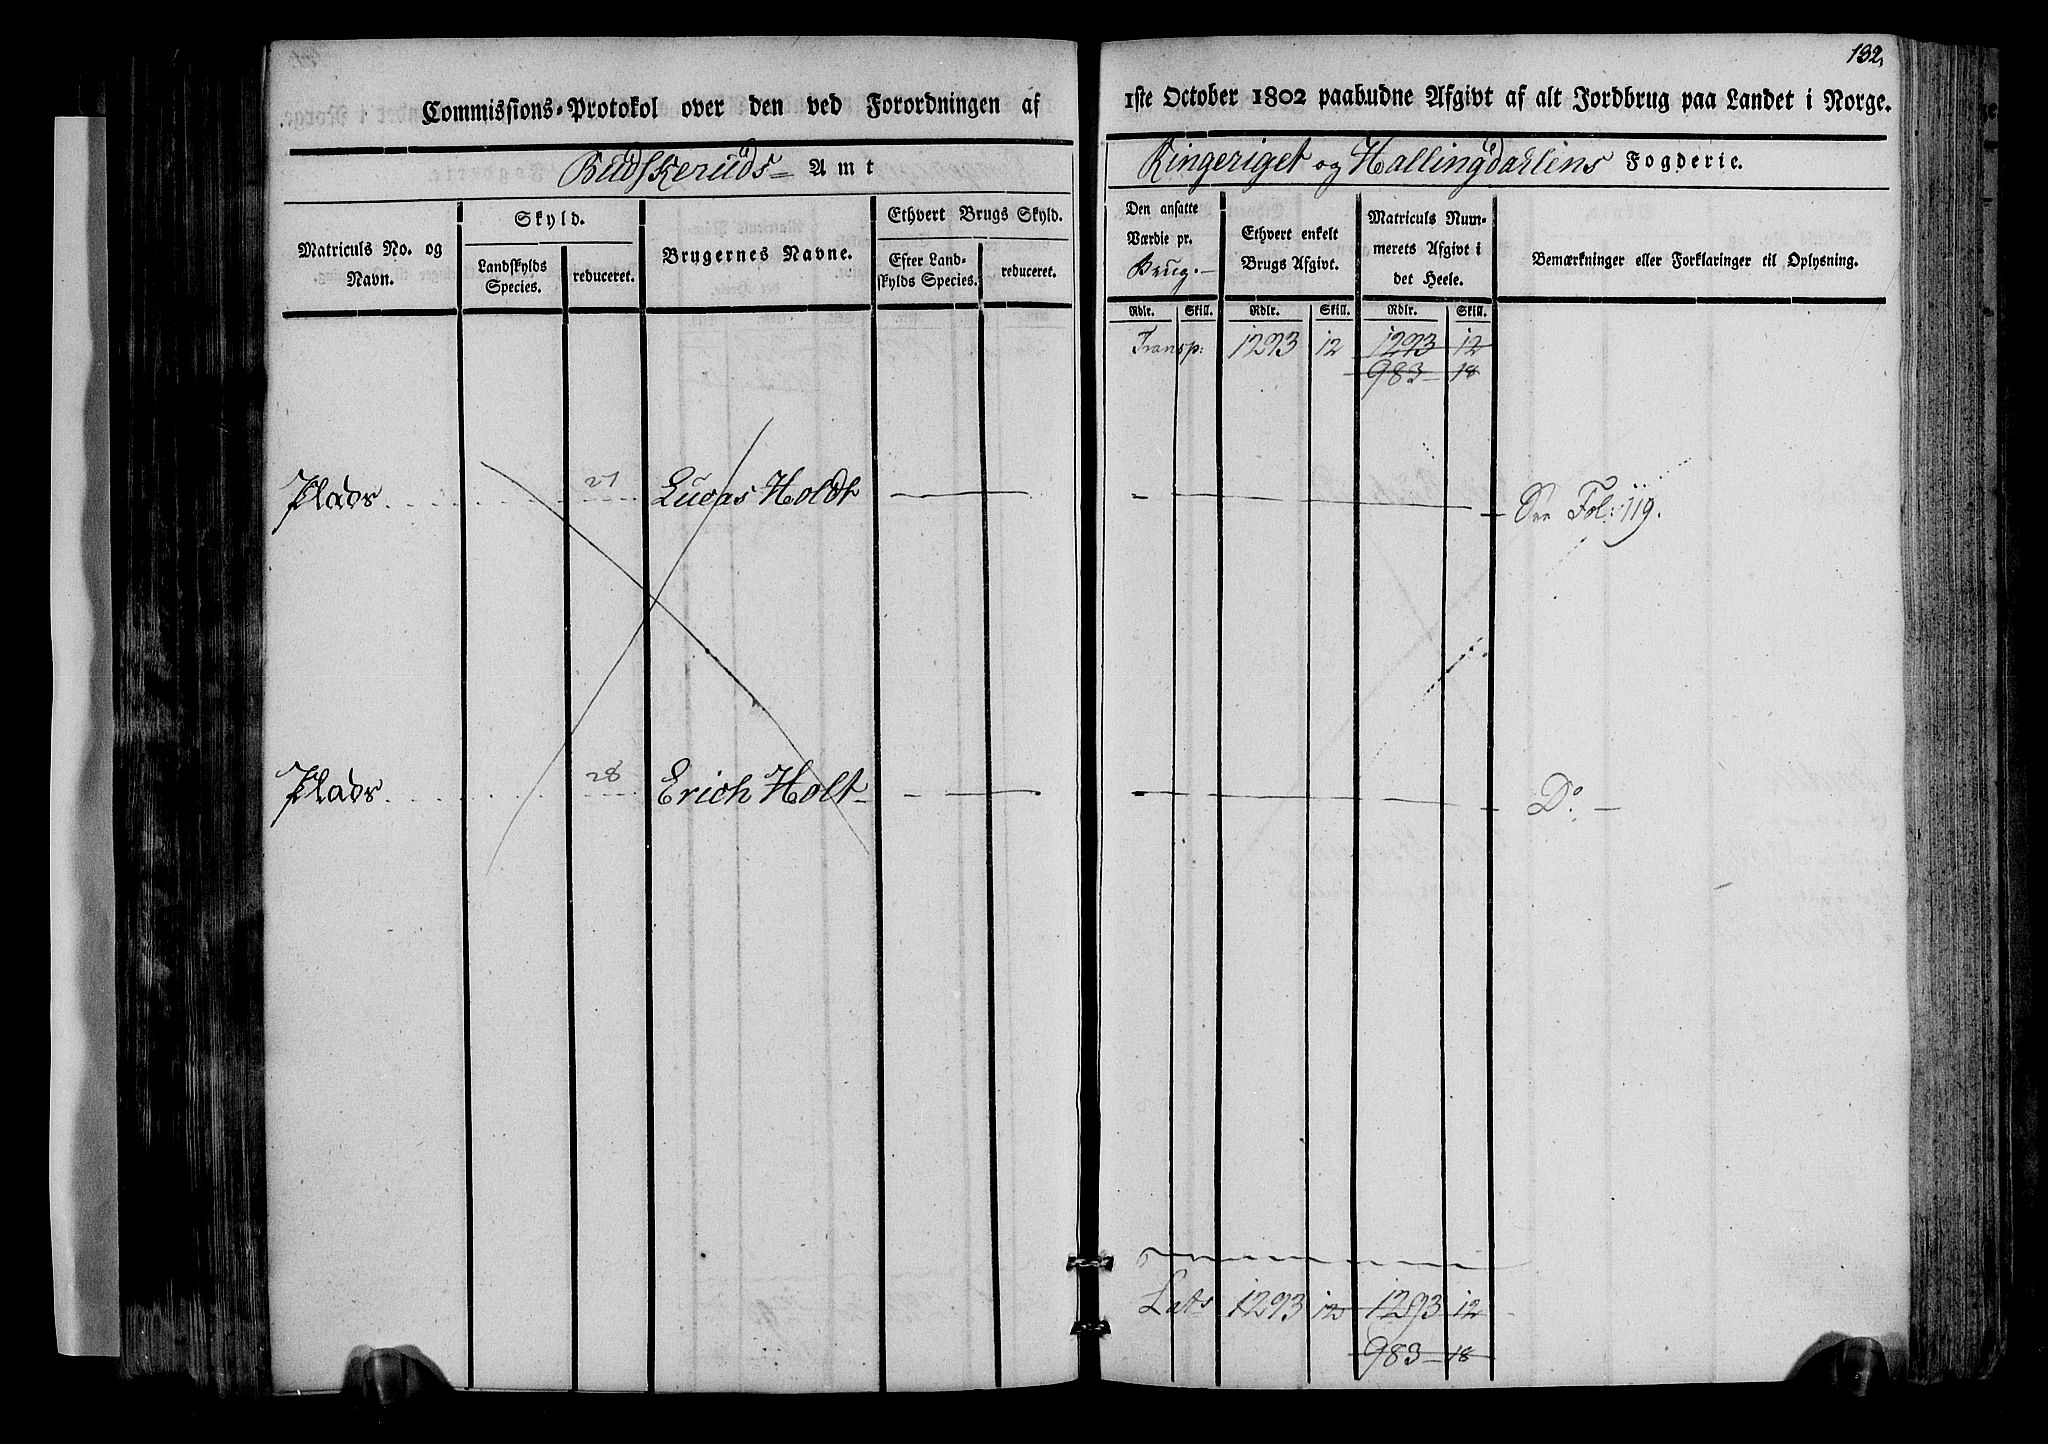 132,
Commissions-Protokol over den ved Forordningen af 1ste October 1802 paabudne Afgivt af alt Jordbrug paa Landet i Norge.
Budskeruds Amt
Ringeriget og Hallingdahlens Fogderie.
Matriculs No. og Navn.
Skyld.
Landskylds Species.
reduceret.
Brugernes Navne.
Ethvert Brugs Skyld.
Efter Landskylds Species.
reduceret.
Den ansatte Værdie pr. Brug.
Ethvert enkelt Brugs Afgivt.
Matriculs Nummerets Afgivt i det Heele.
Bemærkninger eller Forklaringer til Oplysning.
Rdlr. Skill. Rdlr. Skill. Rdlr. Skill.
Transp: 1293 12 1293 12
983 18
Plads 27 Lucas Holdt See Fol: 119.
Plads 28 Erich Holt Do
Lats 1293 12 1293 12
983 18